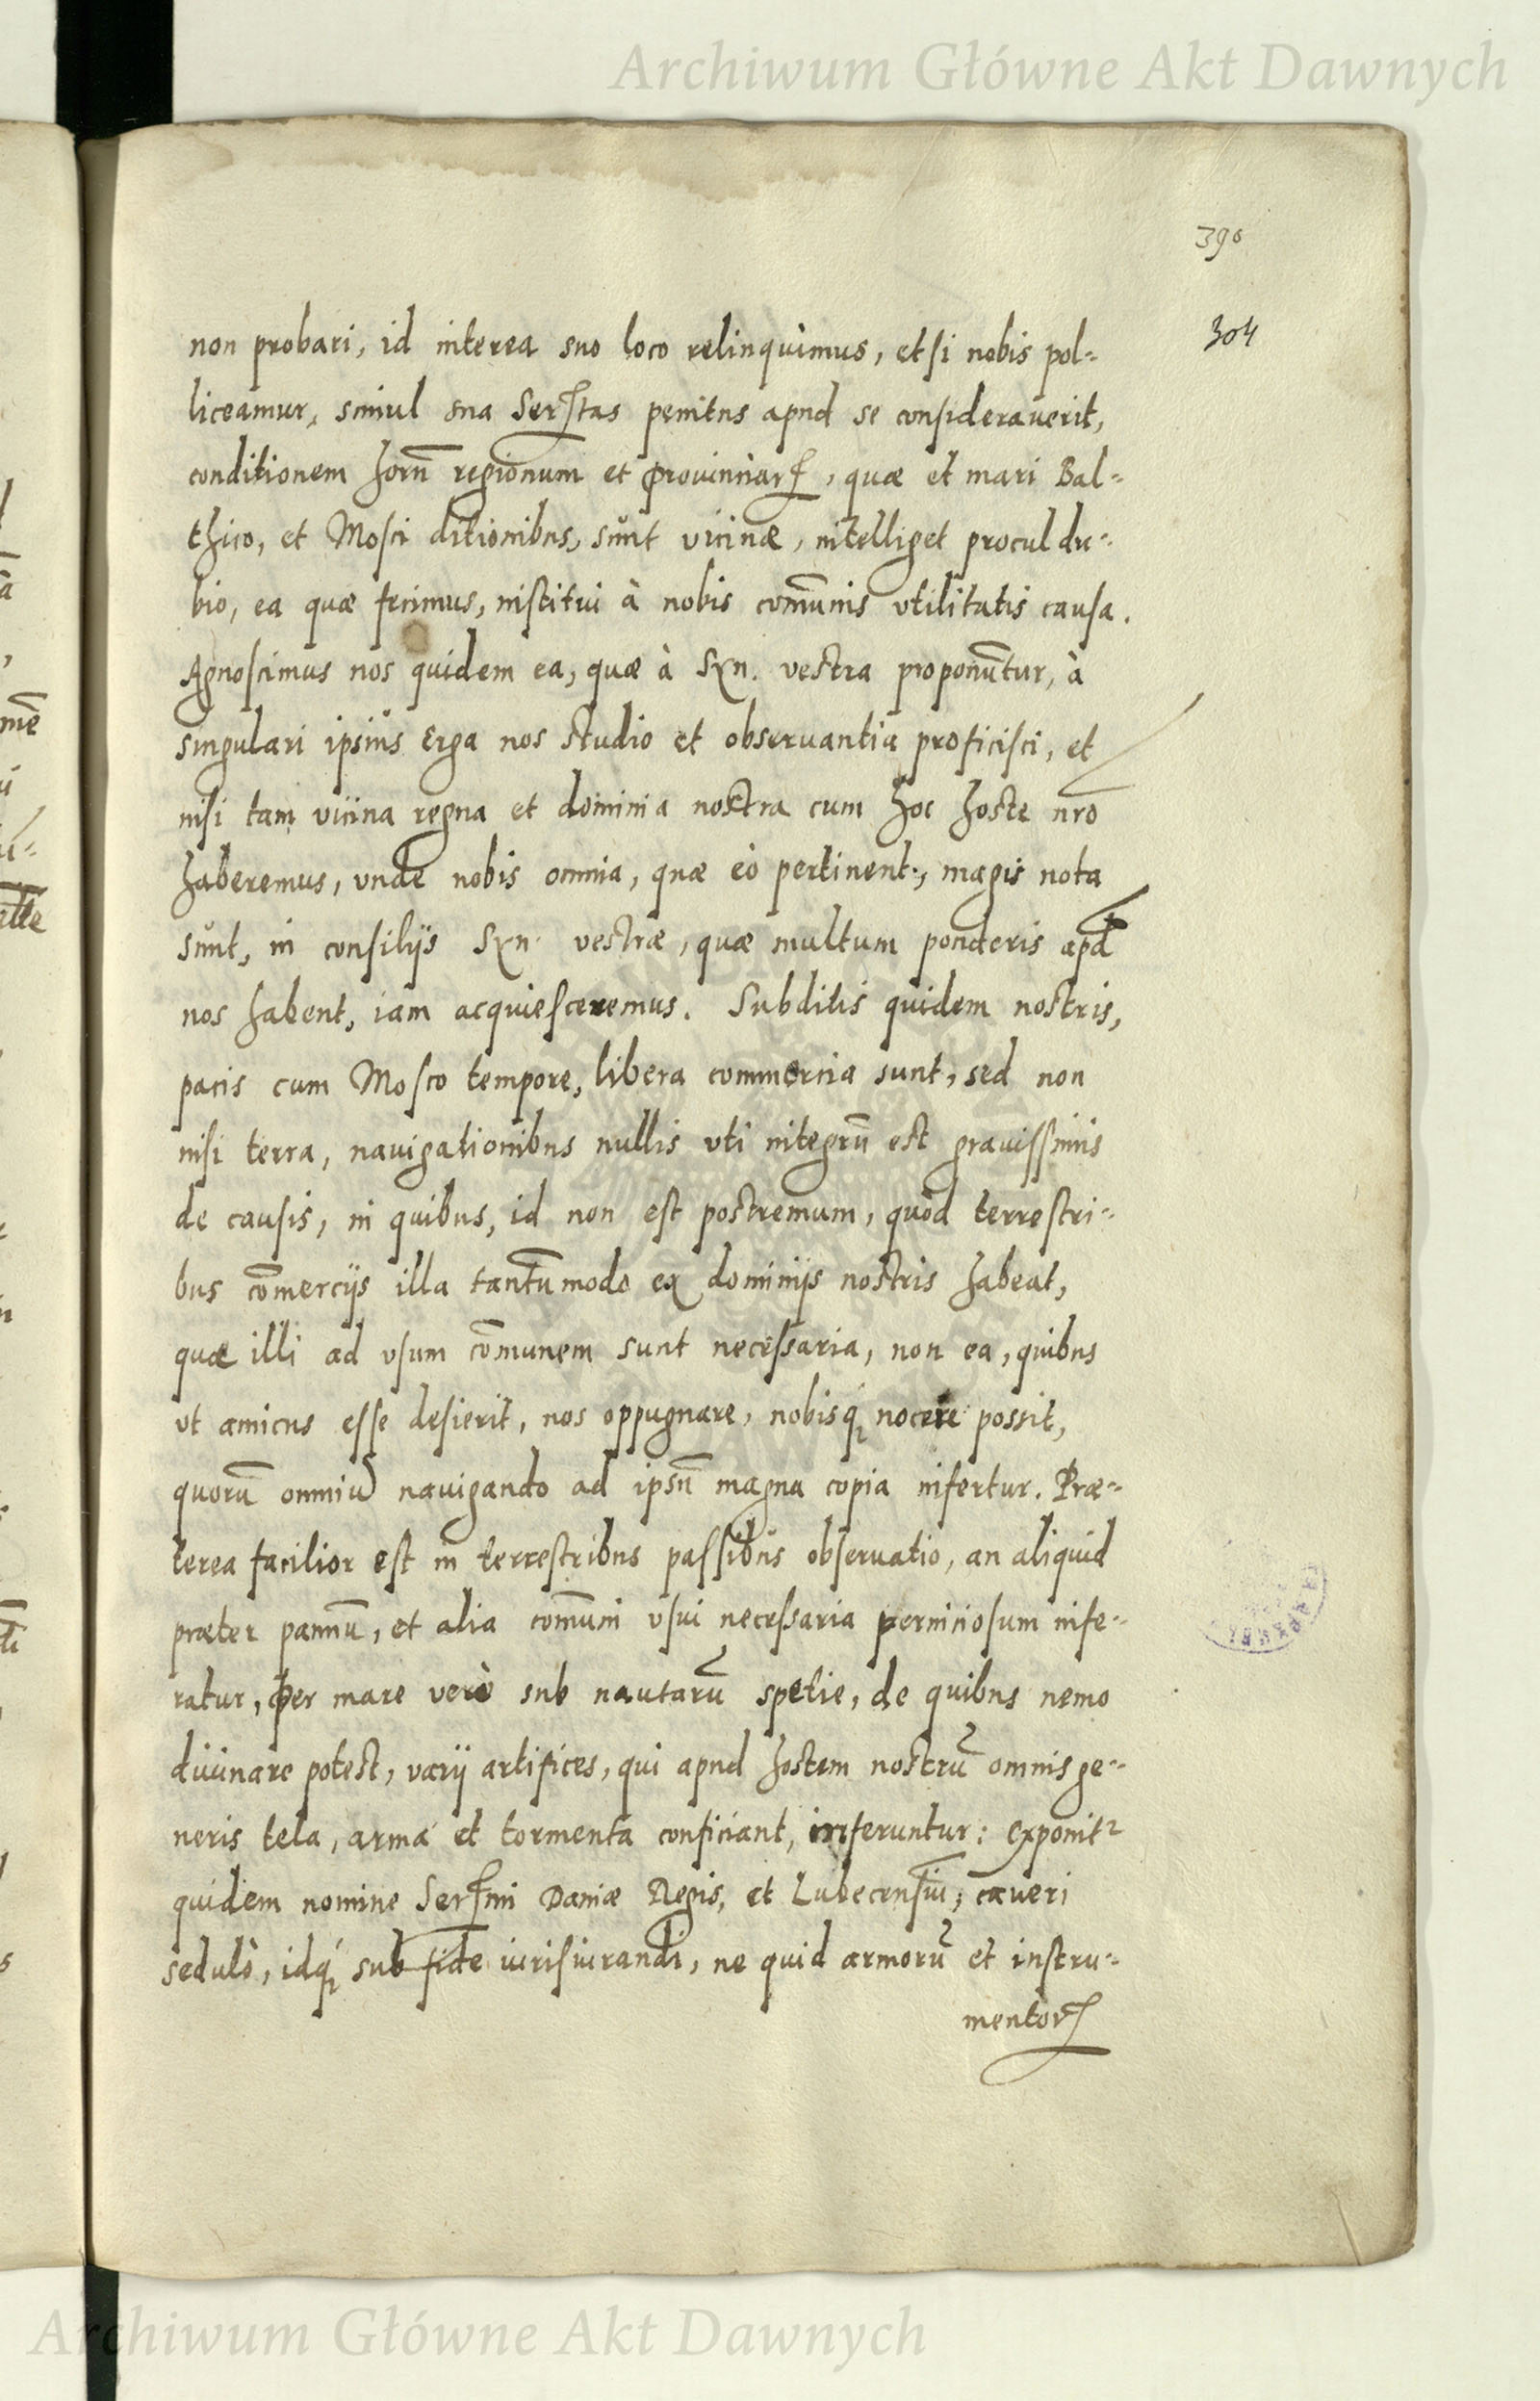 Archiwum Główne Akt Dawnych
390
304
non probari, id interea suo loco relinquimus, etsi nobis pol-
liceamur, simul sua Serstas penitus apud se considerauerit,
conditionem horū regionum et prouinciarꝝ, quæ et mari Bal-
thico, et Mosci ditionibus, sunt vicinæ, intelliget procul du-
bio, ea quæ fecimus, institui à nobis com̄unis vtilitatis causa.
Agnoscimus nos quidem ea, quæ à Sxn. vestra proponūtur, à
singulari ipsius erga nos studio et obseruantia proficisci, et
nisi tam vicina regna et dominia nostra cum hoc hoste nr̄o
haberemus, vnde nobis omnia, quæ eò pertinent, magis nota
sunt, in consilijs Sxn. vestræ, quæ multum ponderis apd
nos habent, iam acquiesceremus. Subditis quidem nostris,
pacis cum Mosco tempore, libera commercia sunt, sed non
nisi terra, nauigationibus nullis vti integrū est grauissimis
de causis, in quibus, id non est postremum, quòd terrestri-
bus com̄ercijs illa tantūmodo ex dominijs nostris habeat,
quæ illi ad vsum com̄unem sunt necessaria, non ea, quibus
vt amicus esse desierit, nos oppugnare, nobisqꝫ nocere possit,
quorū omniū nauigando ad ipsū magna copia infertur. Præ-
terea facilior est in terrestribus passibus obseruatio, an aliquid
præter pannū, et alia com̄uni vsui necessaria perniciosum infe-
ratur, per mare verò sub nautarū spetie, de quibus nemo
diuinare potest, varij artifices, qui apud hostem nostrū omnis ge-
neris tela, arma et tormenta conficiant, inferuntur: exponitr
quidem nomine Sermi Daniæ Regis, et Lubecensiū, caueri
sedulò, idqꝫ sub fide iurisiurandi, ne quid armorū et instru-
mentorꝝ
Archiwum Główne Akt Dawnych